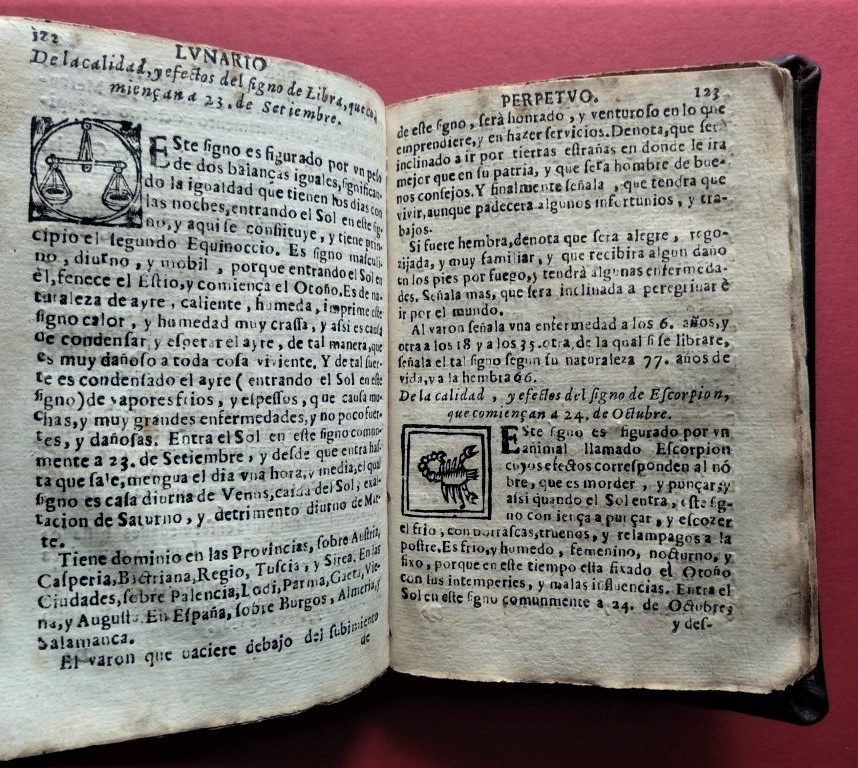 122
LVNARIO
De la calidad, y efectos del signo de Libra, que co-
miençan a 23. de Setiembre.
ESte signo es figurado por vn peso
de dos balanças iguales, significan-
do la igualdad que tienen los dias con
las noches, entrando el Sol en este sig-
no, y aqui se constituye, y tiene prin-
cipio el segundo Equinoccio. Es signo masculi-
no, diurno, y mobil, porque entrando el Sol en
èl, fenece el Estio, y comiença el Otoño. Es de na-
turaleza de ayre, caliente, humeda, imprime este
signo calor, y humedad muy crassa, y assi es causa
de condensar, y esperar el ayre, de tal manera, que
es muy dañoso a toda cosa viviente. Y de tal suer-
te es condensado el ayre (entrando el Sol en este
signo) de vapores frios, y espessos, que causa mu-
chas, y muy grandes enfermedades, y no poco fuer-
tes, y dañosas. Entra el Sol en este signo comun-
mente a 23. de Setiembre, y desde que entra has-
ta que sale, mengua el dia vna hora, y media, el qual
signo es casa diurna de Venus, caida del Sol, exal-
tacion de Saturno, y detrimento diurno de Mar-
te.
Tiene dominio en las Provincias, sobre Austria,
Casperia, Bactriana, Regio, Tuscia, y Sirea. En las
Ciudades, sobre Palencia, Lodi, Parma, Gaeta, Vie-
na, y Augusta. En España, sobre Burgos, Almeria, y
Salamanca.
El varon que naciere debajo del subimiento
de
PERPETVO.
123
de este signo, serà honrado, y venturoso en lo que
emprendiere, y en hazer servicios. Denota, que serà
inclinado a ir por tierras estrañas en donde le ira
mejor que en su patria, y que serà hombre de bue-
nos consejos. Y finalmente señala, que tendra que
vivir, aunque padecerà algunos infortunios, y tra-
bajos.
Si fuere hembra, denota que sera alegre, rego-
zijada, y muy familiar, y que recibira algun daño
en los pies por fuego, y tendrà algunas enfermeda-
des. Señala mas, que sera inclinada a peregrinar è
ir por el mundo.
Al varon señala vna enfermedad a los 6. años, y
otra a los 18 y a los 35. otra, de la qual si se librare,
señala el tal signo segun su naturaleza 77. años de
vida, y a la hembra 66.
De la calidad, y efectos del signo de Escorpion,
que comiençan a 24. de Octubre.
ESte signo es figurado por vn
animal llamado Escorpion
cuyos efectos corresponden al nó
bre, que es morder, y punçar; y
assi quando el Sol entra, este sig-
no comiença a punçar, y escozer
el frio, con borrascas, truenos, y relampagos a la
postre. Es frio, y humedo, femenino, nocturno, y
fixo, porque en este tiempo esta fixado el Otoño
con sus intemperies, y malas influencias. Entra el
Sol en este signo comunmente a 24. de Octubre;
y des-